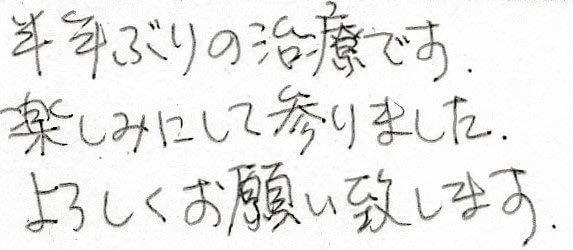 半年ぶりの治療です.
楽しみにして参りました.
よろしくお願い致します.